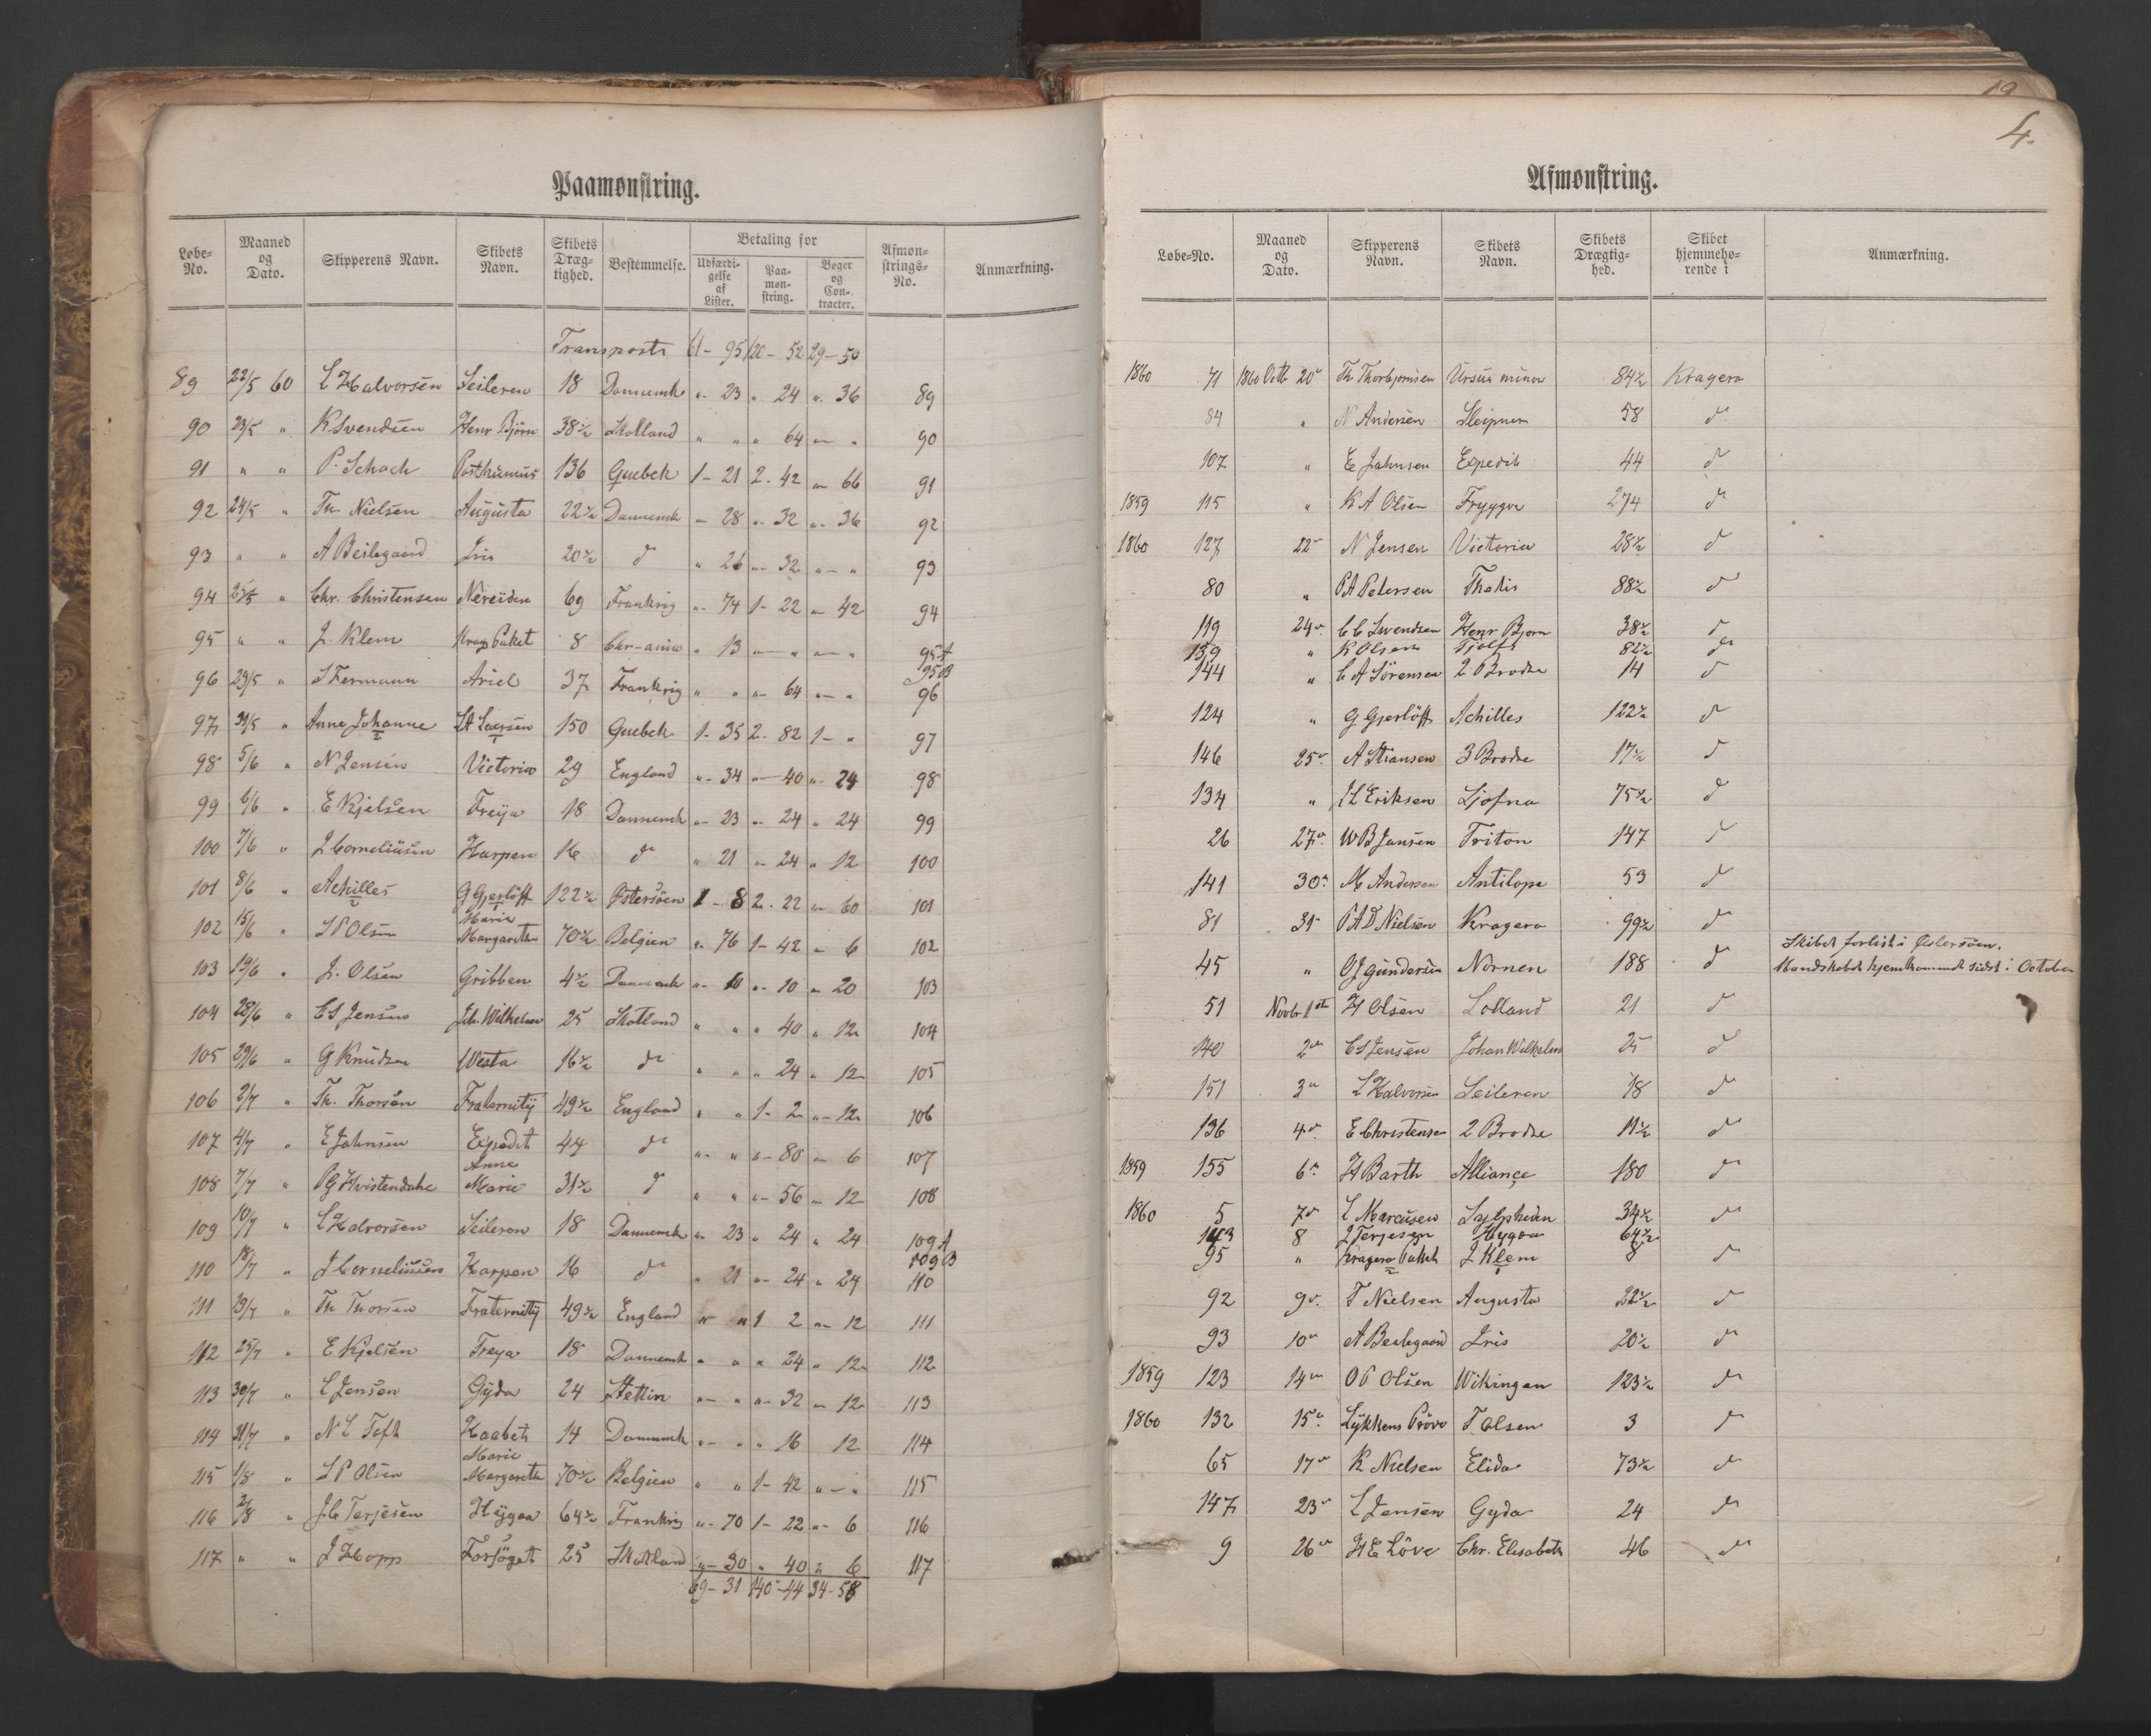 Paamønstring.
Løbe-No. Maaned og Dato. Skipperens Navn. Skibets Navn. Skibets Dræg-tighed. Bestemmelse. Betaling for Udfærdi-gelse af Lister. Paa-møn-string. Bøger og Con-tracter. Afmøn-strings-No. Anmærkning.
Transport 61-95 120-52 29-50
89 22/5 60 L Halvorsen Seileren 18 Dannemk " 23 " 24 " 36 89
90 23/5 " K Svendsen Henr Bjørn 38½ Skotland " " " 64 " " 90
91 " " P. Schach Posthumus 136 Quebek 1-21 2-42 " 66 91
92 24/5 " Th. Nielsen Augusta 22½ Dannemk " 28 " 32 " 36 92
93 " " A Beilegaard Iris 20½ do " 26 " 32 " " 93
94 25/5 " Chr. Christensen Nereiden 69 Frankrig " 74 1-22 " 42 94
95 " " J. Klem Krag Paket 8 Chr-ania " 13 " " " " 95A
95B
96 29/5 " S Fermann Ariel 37 Frankrig " " " 64 " " 96
97 31/5 " Anne Johanne 2 St Larsen 1 150 Quebek 1-35 2-82 1-" 97
98 5/6 " N Jensen Victoria 29 England " 34 " 40 " 24 98
99 6/6 " E Kjelsen Freya 18 Dannemk " 23 " 24 " 24 99
100 7/6 " J Corneliusen Harpen 16 do " 21 " 24 " 12 100
101 8/6 " Achilles 2 G Gjerløff 1 122½ Østersøen 1-8 2-22 " 60 101
102 15/6 " S P Olsen Maria Margaretha 70½ Belgien " 76 1-42 " 6 102
103 19/6 " J. Olsen Gribben 4½ Dannemk " 10 " 10 " 20 103
104 28/6 " C S Jensen Joh. Wilhelm 25 Skotland " " " 40 " 12 104
105 29/6 " G Knudsen Westa 16½ do " " " 24 " 12 105
106 2/7 " Th. Thorsen Fraternity 49½ England " " 1-2 " 12 106
107 4/7 " E Jahnsen Expedit 44 do " " " 80 " 6 107
108 7/7 " P G Hvistendahl Anne Marie 31½ do " " " 56 " 12 108
109 10/7 " L Halvorsen Seileren 18 Dannemk " 23 " 24 " 24 109A
109B
110 18/7 " J Corneliussen Harpen 16 do " 21 " 24 " 24 110
111 19/7 " Th Thorsen Fraternity 49½ England " " 1 2 " 12 111
112 25/7 " E Kjelsen Freya 18 Dannemk " " " 24 " 12 112
113 30/7 " L Jensen Gyda 24 Stettin " " " 32 " 12 113
114 31/7 " N L Toft Haabet 14 Dannemk " " " 16 12 114
115 1/8 " S P Olsen Marie Margaretha 70½ Belgien " " 1-42 " " 115
116 2/8 " J C Terjesen Hygea 64½ Frankrig " 70 1-22 " 6 116
117 " " J Hopp Forsøget 25 Skotland " 30 " 40 " 6 117
69-31 140-44 34-58
4.
Afmønstring.
Løbe-No. Maaned og Dato. Skipperens Navn. Skibets Navn. Skibets Drægtig-hed. Skibet hjemmehø-rende i Anmærkning.
1860 71 1860 Octb 20 Th Thorbjørnsen Ursus minor 84½ Kragerø
84 " N Andersen Sleipner 58 do
107 " E Jahnsen Expedit 44 do
1859 115 " K A Olsen Tryggve 274 do
1860 127 22 N Jensen Victoria 28½ do
80 " P A Petersen Thetis 88½ do
119 24 C C Svendsen Henr Bjørn 38½ do
139 " K Olsen Fjolfr 82½ do
144 " C A Sörensen 2 Brødre 14 do
124 " G Gjerløff Achilles 122½ do
146 25 A Stiansen 3 Brødre 17½ do
134 " J L Eriksen Sjofna 75½ do
26 27 W B Jansen Triton 147 do
141 30 M Andersen Antilope 53 do
81 31 P A D Nielsen Kragerø 99½ do
Skibet forlist i Østersøen.
45 " O J Gundersen Nornen 188 do Mandskabet hjemkommet sidst i October
51 Novbr 1ste H Olsen Lolland 21 do
140 2 C S Jensen Johan Wilhelm 25 do
151 3 L Halvorsen Seileren 18 do
136 4 E Christensen 2 Brødre 11½ do
1859 155 6 H Barth Alliance 180 do
1860 5 7 L Marcusen Sylphiden 34½ do
143 8 J Terjesen Hygea 64½
95 " Kragerø Paket 2 J Klem 1 8 do
92 9 T Nielsen Augusta 22½ do
93 10 A Beilegaard Iris 20½ do
1859 123 14 O P Olsen Wikingen 123½ do
1860 132 15 Lykkens Prøve T Olsen 3 do
65 17 R Nielsen Elida 73½ do
147 23 L Jensen Gyda 24 do
9 26 H E Löve Chr. Elisabeth 46 do